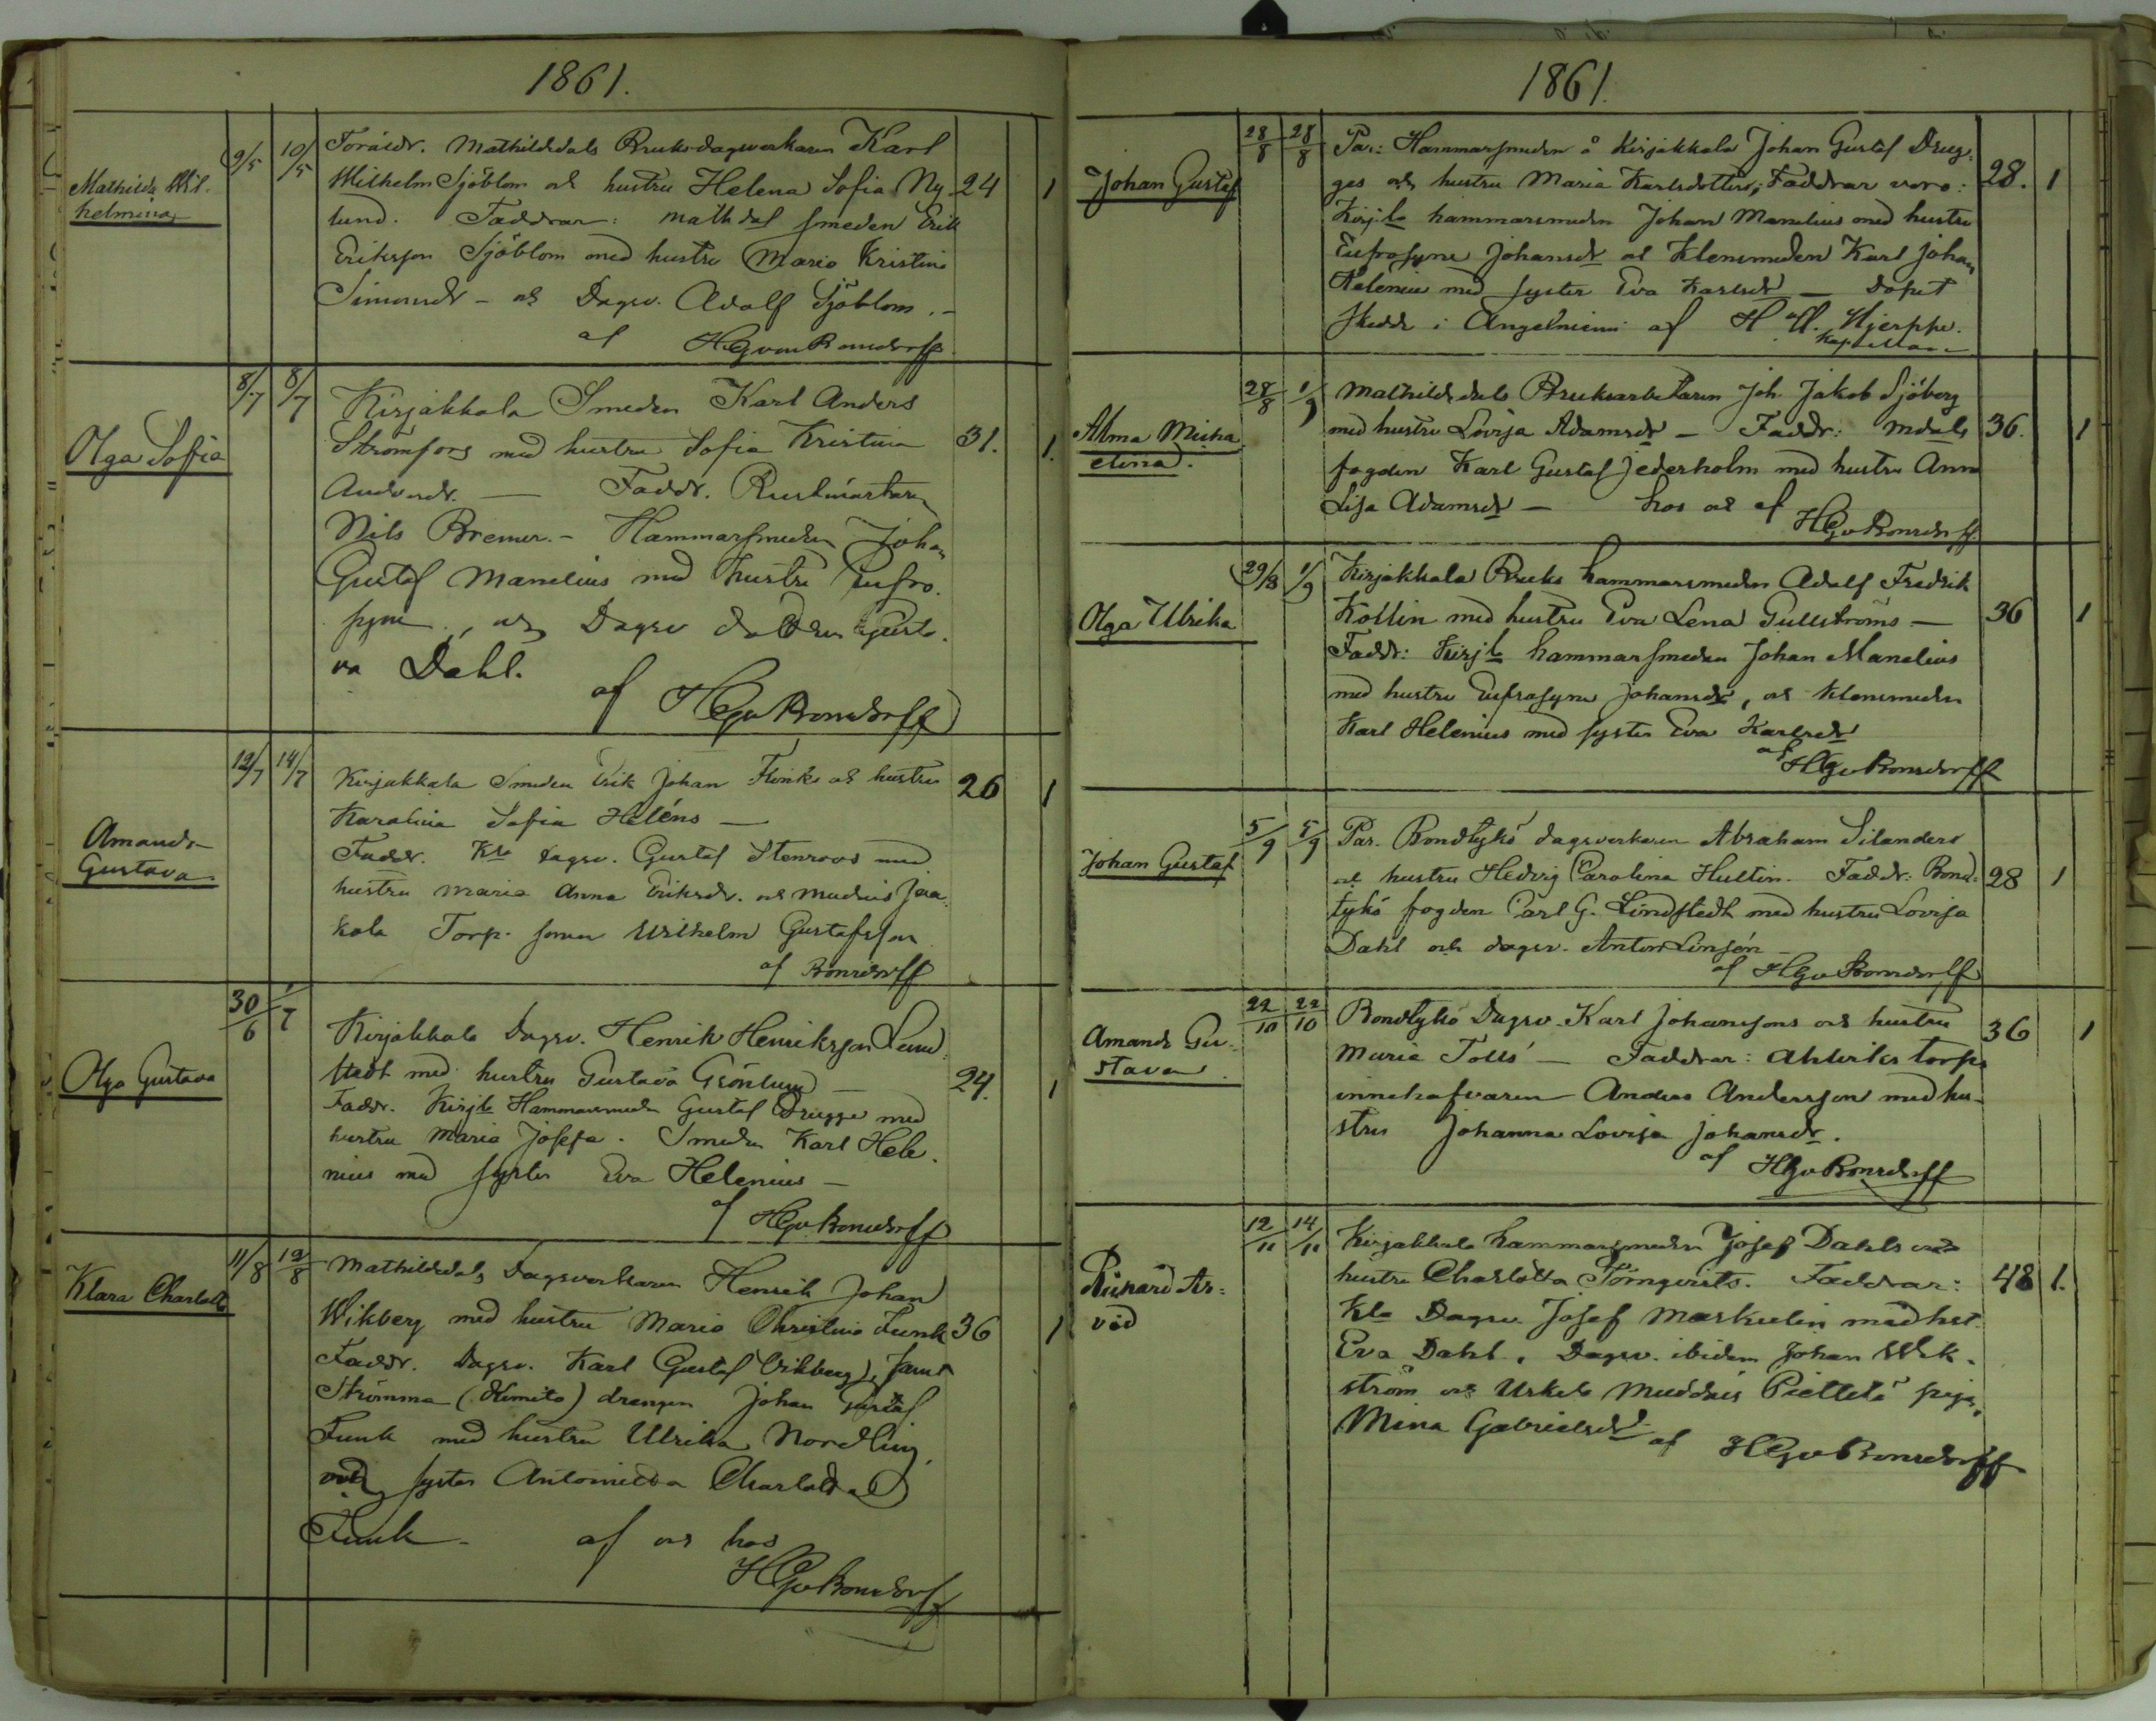 1861.
Mathilda Wil-
helmina
9/5 10/5
Föräldr. Mathildedals Bruksdagsverkaren Karl
Wilhelm Sjöblom och hustru Helena Sofia Ny- 24 1
lund. Faddrar: Mathdal smeden Erik
Eriksson Sjöblom med hustru Maria Kristina
Simonsdr - och Dagsv. Adolf Sjöblom. -
af HGvon Bonsdorff
Olga Sofia
8/7 8/7
Kirjakkala Smeden Karl Anders
Strömfors med hustru Sofia Kristina 31. 1.
Andersdr. - Faddr. Rustmästaren
Nils Bremer. - Hammarsmeden Johan
Gustaf Manelius med hustru Eufro-
syne, och Dagsv dottren Gusta-
va Dahl.
af HGvBonsdorff
Amanda
Gustava
12/7 14/7
Kirjakkala Smeden Erik Johan Flinks och hustru 26 1
Karolina Sofia Heléns -
Faddr. Kla Dagsv. Gustaf Stenroos med
hustru Maria Anna Eriksdr. och Muddais Jaa-
kola Torp. sonen Wilhelm Gustafsson
af Bonsdorff
Olga Gustava
30/6 1/7
Kirjakkala Dagsv. Henrik Henriksson Lund-
stedt med hustru Gustava Grönlund - 24. 1
Faddr. Kirjla Hammarsmeden Gustaf Drugge med
hustru Maria Josefa. Smeden Karl Hele-
nius med syster Eva Helenius -
af HGvBonsdorff
Klara Charlotta
11/8 12/8
Mathildedals Dagsverkaren Henrik Johan
Wikberg med hustru Maria Christina Funk 36 1
Faddr. Dagsv. Karl Gustaf Vikberg, samt
Strömma (Kimito) drängen Johan Gustaf
Funk med hustru Ulrika Nordling,
och syster Antoinetta Charlotta
Funk - af och hos
HGvBonsdorff
1861.
Johan Gustaf
28/8 28/8
Par: Hammarsmeden å Kirjakkala Johan Gustaf Drug-
ges och hustru Maria Karlsdotters; Faddrar voro: 28. 1
Kirjla hammarsmeden Johan Manelius med hustru
Eufrosyne Johansdr och Klensmeden Karl Johan
Helenius med syster Eva Karlsdr - Dopet
skedde i Angelniemi af H. W. Hjerppe.
Kapellan
Alma Micha-
elina.
28/8 1/9
Mathildedals Bruksarbetaren Joh. Jakob Sjöberg
med hustru Lovisa Adamsdr - Faddr: Mdals 36. 1
fogden Karl Gustaf Jederholm med hustru Anna
Lisa Adamsdr - hos och af
HGvBonsdorff
Olga Ulrika
29/8 1/9
Kirjakkala Bruks hammarsmeden Adolf Fredrik
Kollin med hustru Eva Lena Gullströms - 36 1
Faddr: Kirjla hammarsmeden Johan Manelius
med hustru Eufrosyne Johansdr, och klensmeden
Karl Helenius med syster Eva Karlsdr
af HGvBonsdorff
Johan Gustaf
5/9 5/9
Par. Bondtykö dagsverkaren Abraham Silanders
och hustru Hedvig Carolina Hultin. Faddr: Bond- 28 1
tykö fogden Carl G. Lindstedt med hustru Lovisa
Dahl och dagsv. Anton Linsén -
af HGvBonsdorff
Amanda Gu-
stava.
22/10 22/10
Bondtykö Dagsv. Karl Johanssons och hustru 36 1
Maria Tolls - Faddrar: torps
innehafvaren Anders Andersson med hu-
stru Johanna Lovisa Johansdr.
af HGvBonsdorff
Rickard Ar-
vid
12/11 14/11
Kirjakkala hammarsmeden Josef Dahls och
hustru Charlotta Törnqvists. Faddrar: 48 1.
Kla Dagsv. Josef Maskulin med hst.
Eva Dahl. Dagsv. ibidem Johan Wik-
ström och Uskela Muddais Piettilä piga,
Mina Gabrielsdr af HGvBonsdorff